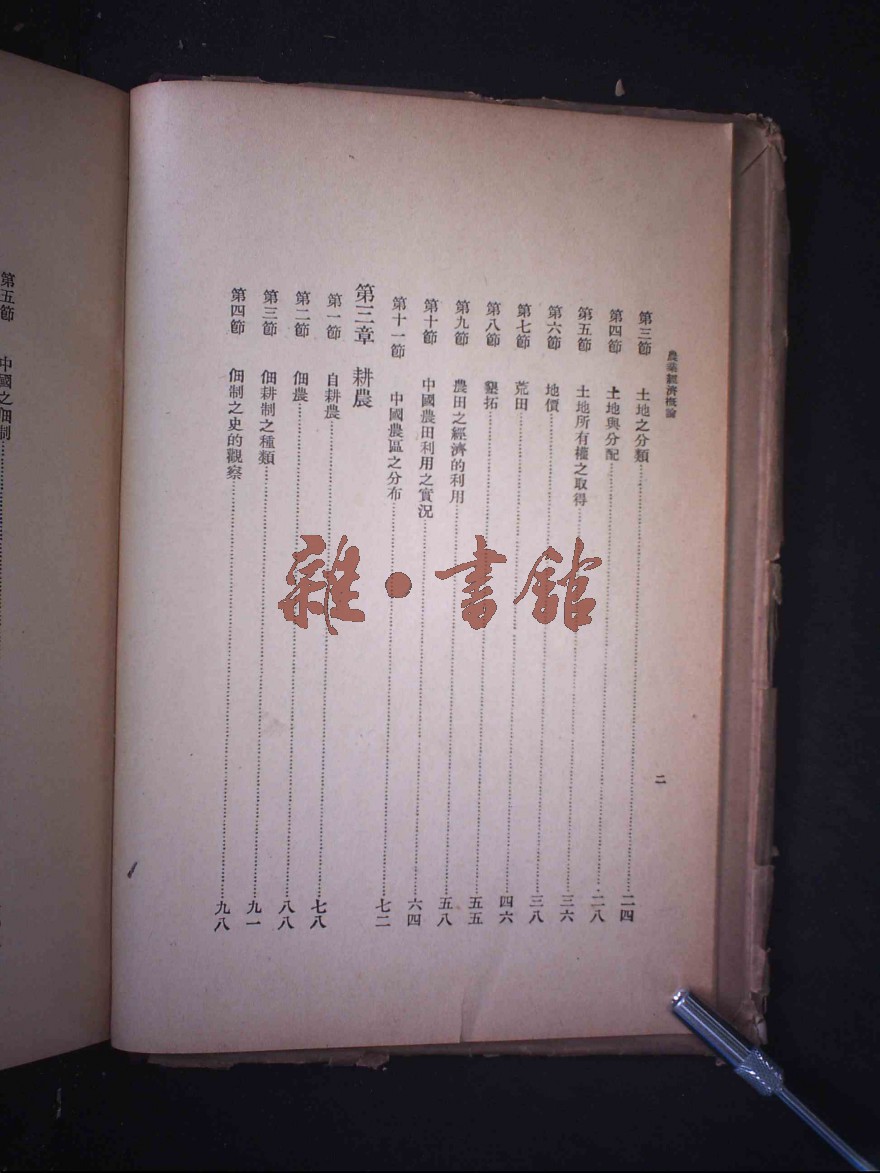 農業經濟概論
二
第三節 土地之分類……二四
第四節 土地與分配……二八
第五節 土地所有權之取得……三六
第六節 地價……三八
第七節 荒田……四六
第八節 墾拓……五五
第九節 農田之經濟的利用……五八
第十節 中國農田利用之實況……六四
第十一節 中國農區之分布……七二
第三章 耕農
第一節 自耕農……七八
第二節 佃農……八八
第三節 佃耕制之種類……九一
第四節 佃制之史的觀察……九八
第五節 中國之佃制……
雜·書館